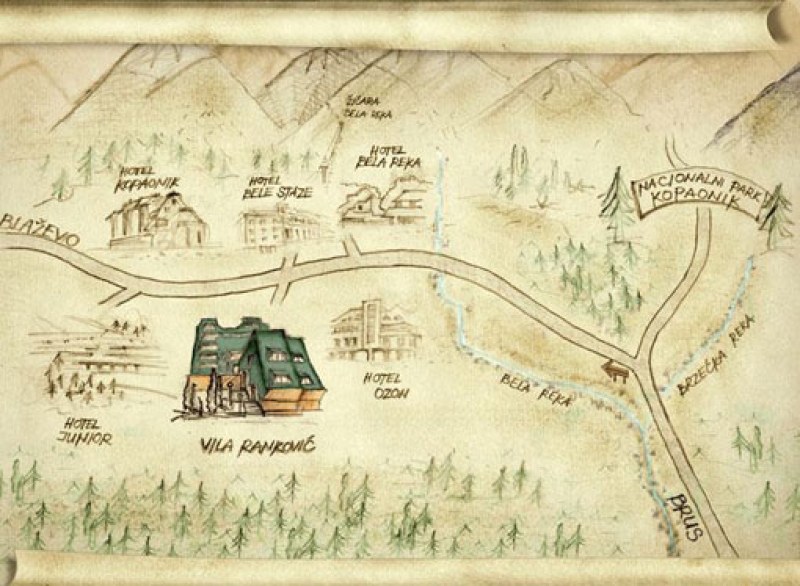 ŽIČARA
BELA REKA
HOTEL
BELA REKA
HOTEL
KOPAONIK
HOTEL
BELE STAZE
NACIONALNI PARK
KOPAONIK
BLAŽEVO
HOTEL
OZON
BELA REKA
BRZEĆKA REKA
HOTEL
JUNIOR
VILA RANKOVIĆ
BRUS